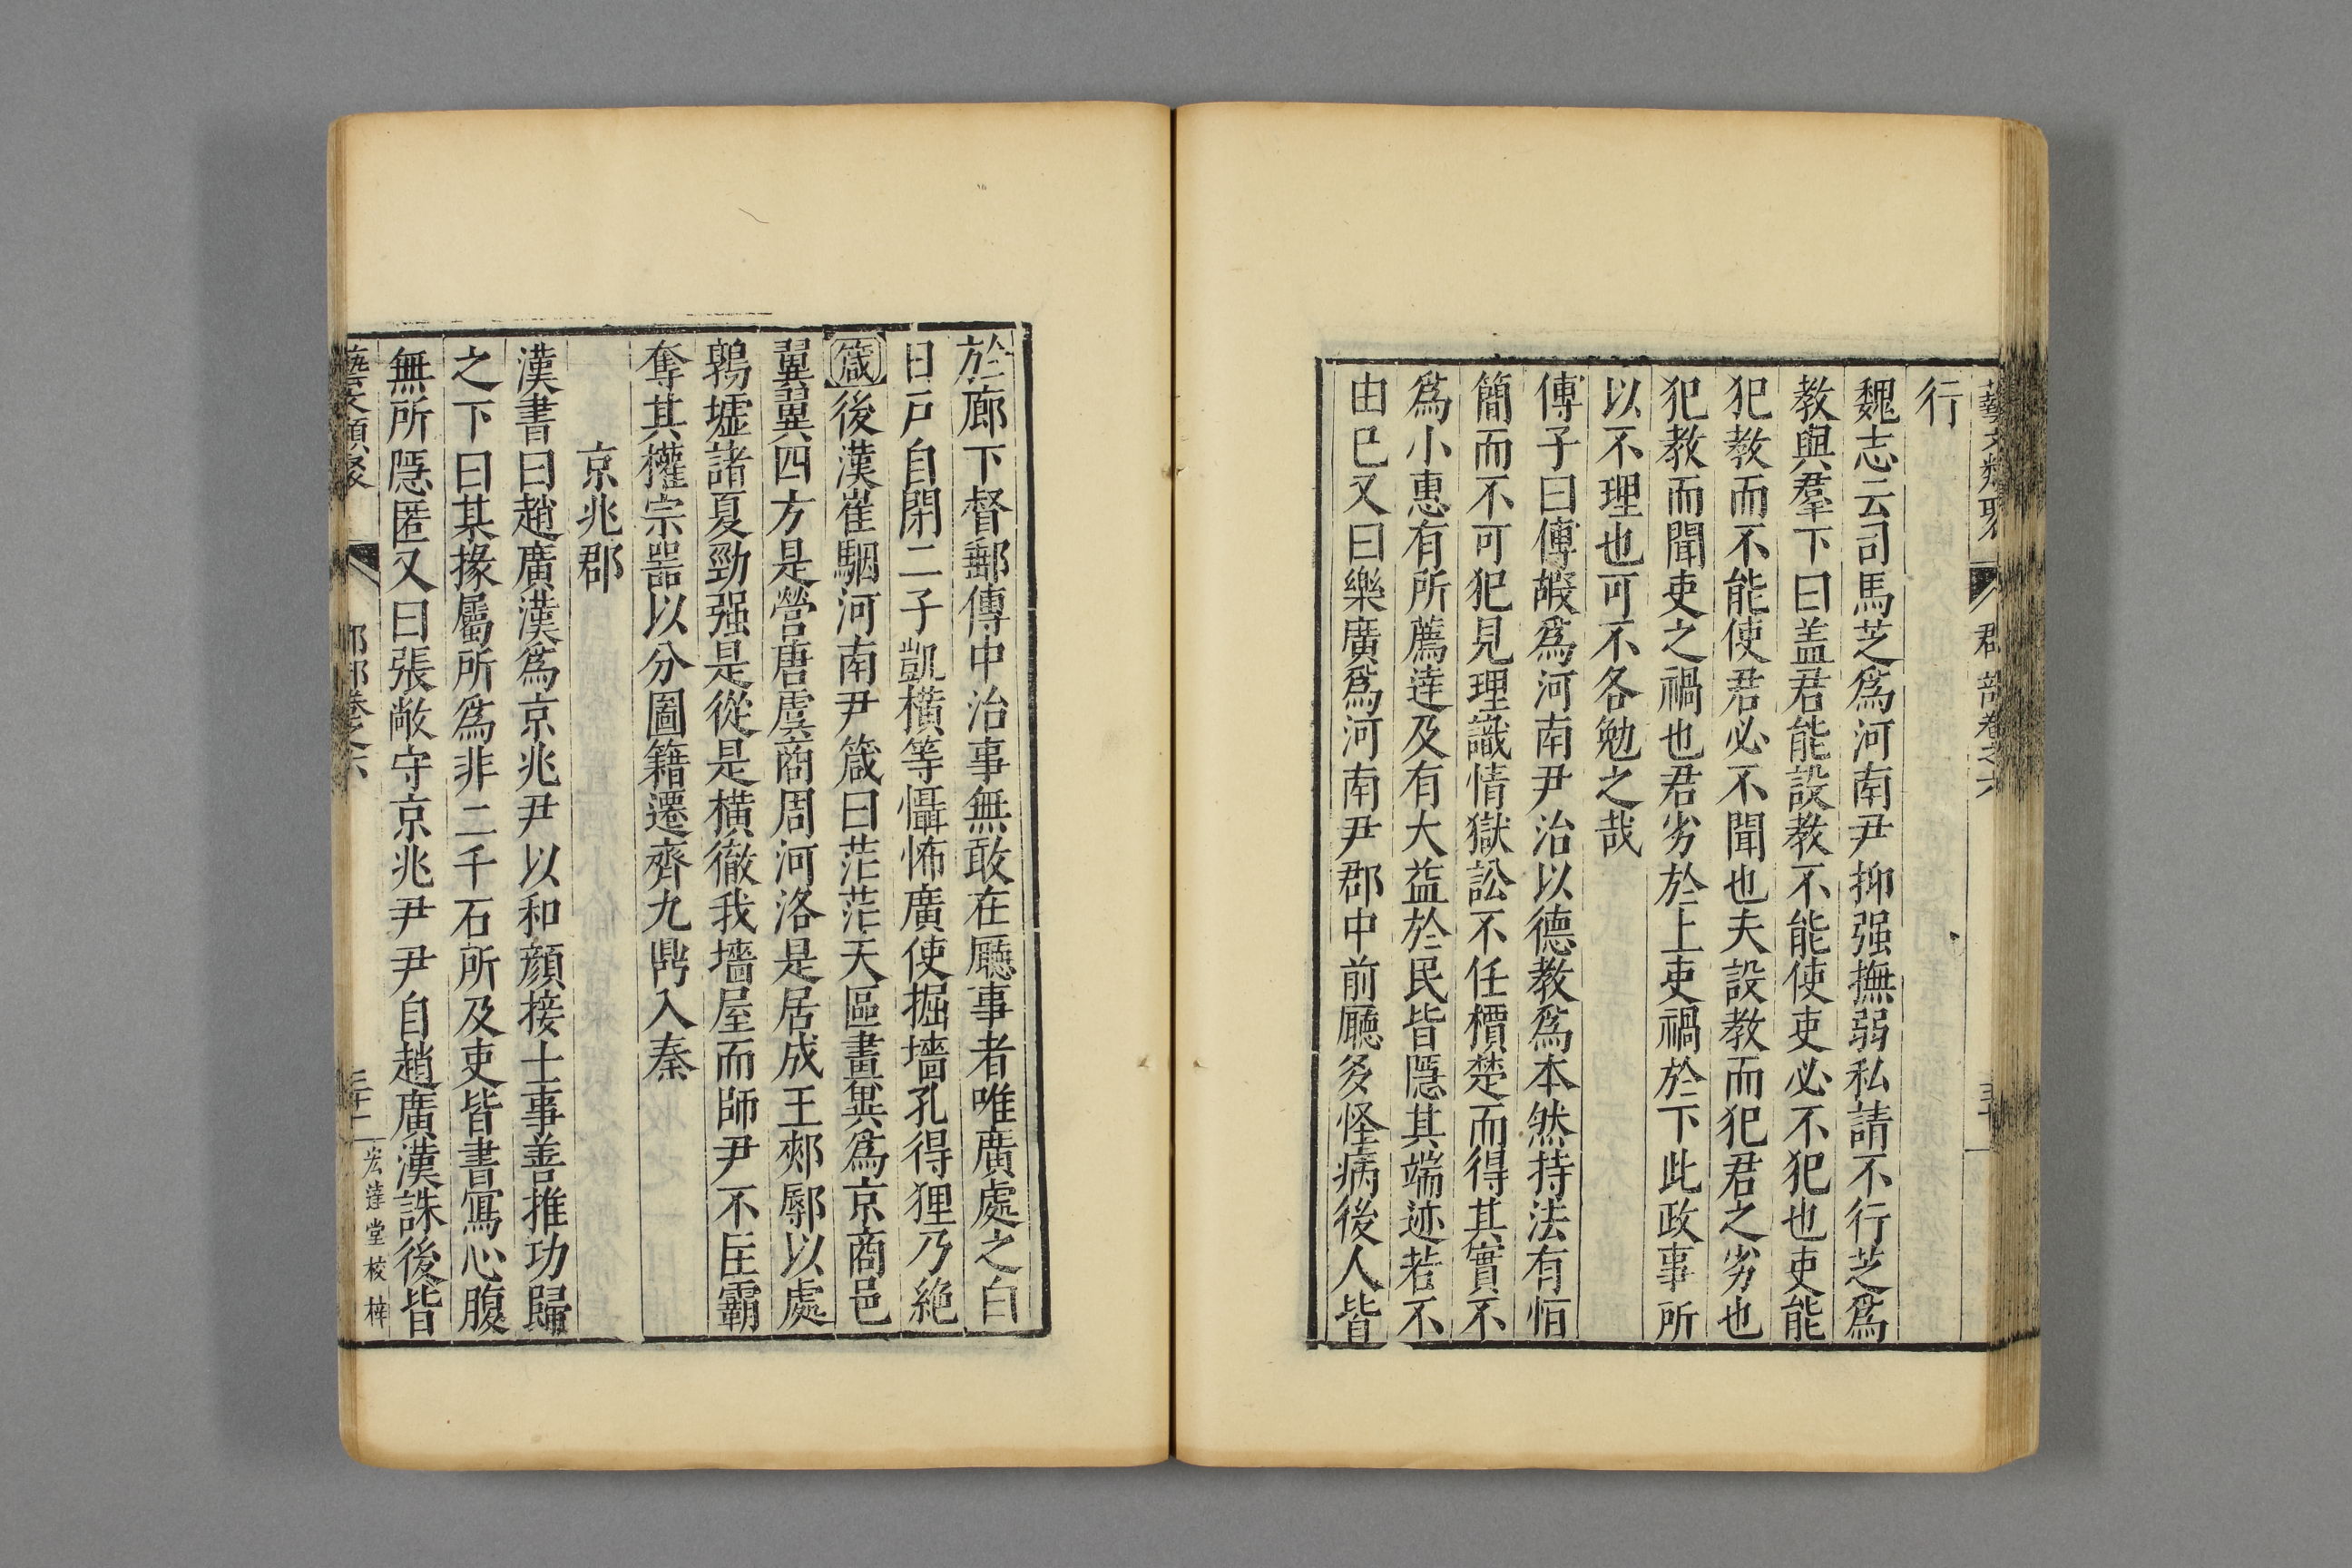 藝文類聚 郡部卷之六
行
魏志云司馬芝爲河南尹抑强撫弱私請不行芝爲
教與羣下曰盖君能設教不能使吏必不犯也吏能
犯教而不能使君必不聞也夫設教而犯君之劣也
犯教而聞吏之禍也君劣於上吏禍於下此政事所
以不理也可不各勉之哉
傅子曰傅嘏爲河南尹治以德教爲本然持法有恒
簡而不可犯見理識情獄訟不任檟楚而得其實不
爲小惠有所薦逹及有大益於民皆隱其端迹若不
由已又曰樂廣爲河南尹郡中前廳多怪病後人皆
於廊下督郵傳中治事無敢在廳事者唯廣處之白
日戸自閉二子凱橫等懾怖廣使掘墻孔得狸乃絶
箴後漢崔駰河南尹箴曰茫茫天區畫冀爲京商邑
翼翼四方是營唐虞商周河洛是居成王郟鄏以處
鶉墟諸夏勁强是從是橫徹我墻屋而師尹不匡霸
奪其權宗噐以分圖籍遷齊九鼎入秦
京兆郡
漢書曰趙廣漢爲京兆尹以和顔接士事善推功歸
之下曰某掾屬所爲非二千石所及吏皆書寫心腹
無所隱匿又曰張敞守京兆尹尹自趙廣漢誅後皆
藝文類聚 郡部卷之六 宏逹堂校梓